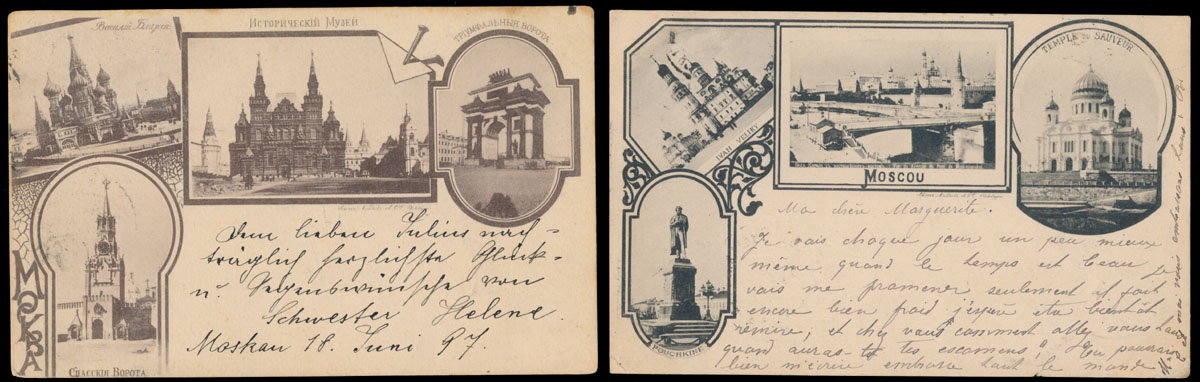 Василій Блажен.
Историческій Музей
Тріумфальныя Ворота
Москва
Спасскія Ворота
Dem lieben Julius nach-
träglich herzlichste Glück-
u. Segenswünsche von
Schwester Helene.
Moskau 18. Juni 97.
Ivan Veliky
Moscou
Temple du Sauveur
Pouchkine
Ma chère Marguerite.
Je vais chaque jour un peu mieux
même quand le temps est beau je
vais me promener seulement il fait
encore bien froid j'espère
et chez vous comment allez vous
quand auras-tu tes examens? Tu pourrais
bien m'écrire embrasse tout le monde